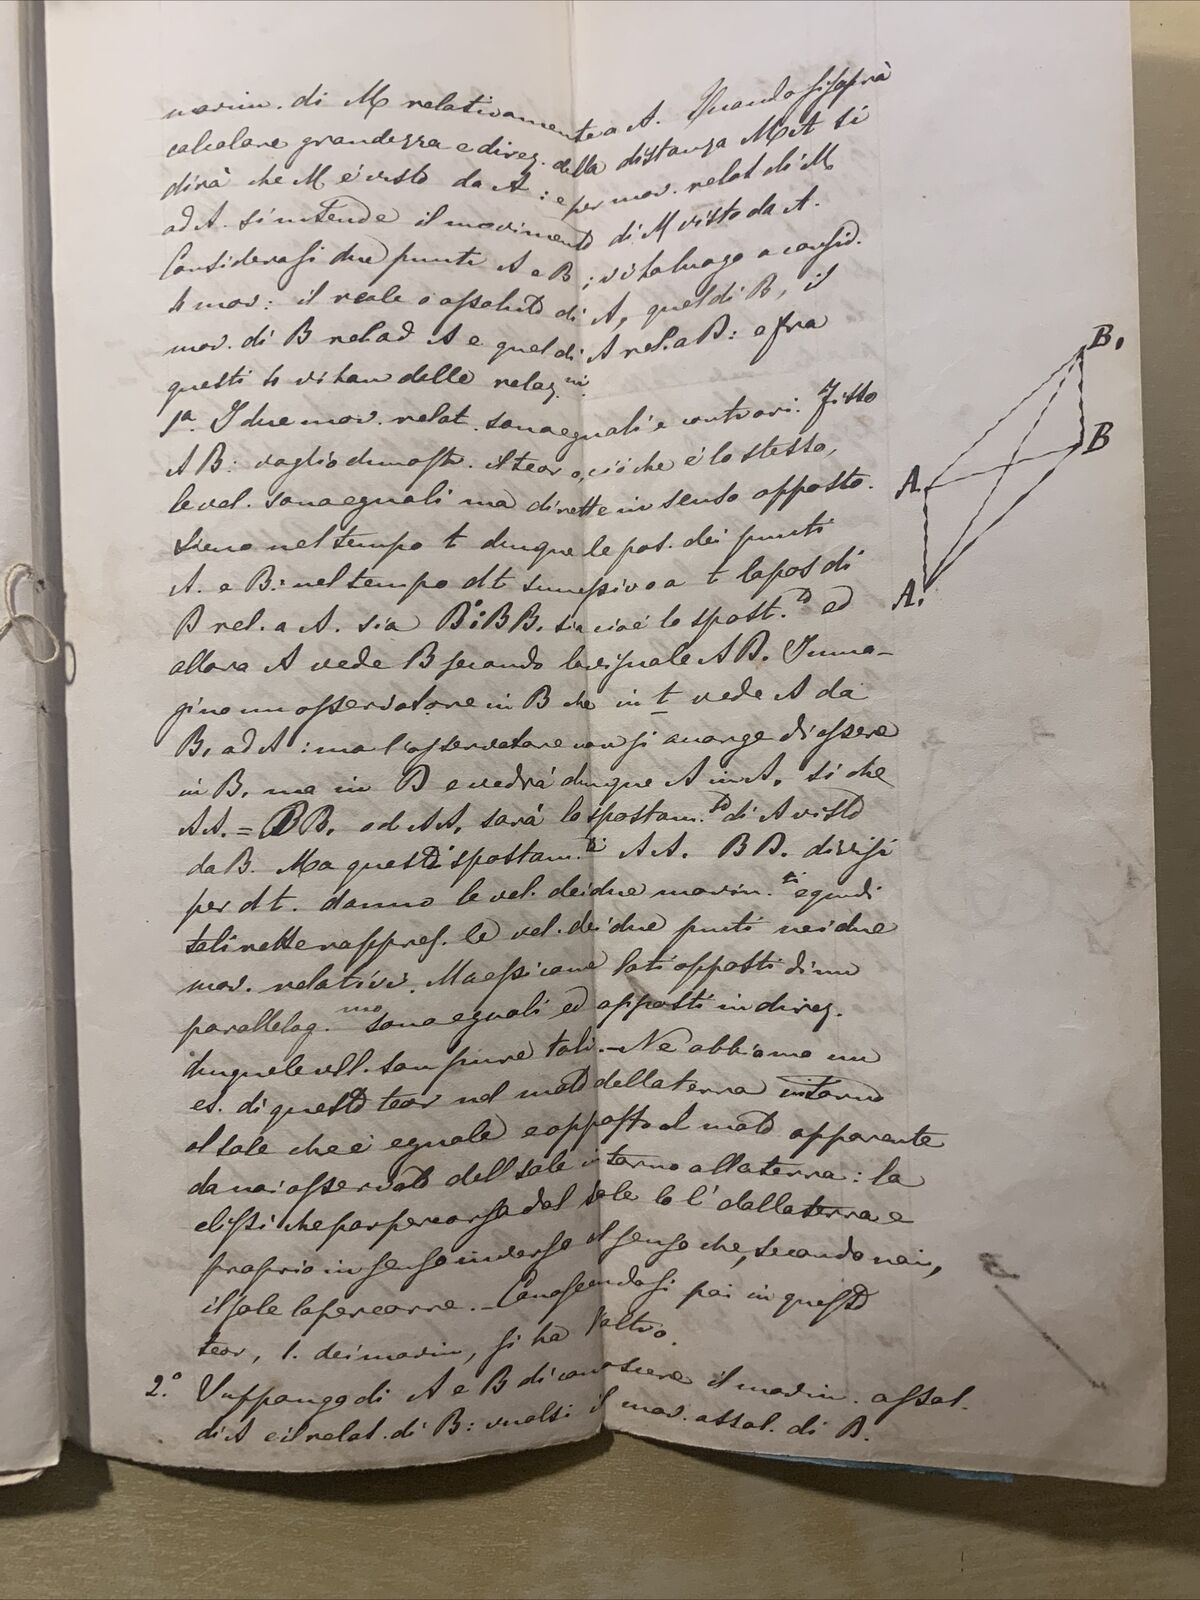 movim. di M relativamente a A. Quando si saprà
calcolare grandezza e direz. della distanza MA si
dirà che M è visto da A: e per mov. relat di M
ad A. si intende il movimento di M visto da A.
Considerasi due punti A e B; vi ha luogo a consid.
4 mov: il reale o assoluto di A, quel di B, il
mov. di B rel. ad A e quel di A rel. a B: e fra
questi 4 vi han delle relaz.ni
1a. I due mov. relat. sono eguali e contrari. Fisso
AB: voglio dimostr. il teor o, ciò che è lo stesso,
le vel. sono eguali ma dirette in senso opposto.
Sieno nel tempo t dunque le pos. dei punti
A. e B: nel tempo dt successivo a t la pos di
B rel. a A. sia B1: BB1 sia cioè lo spost.to ed
allora A vede B secondo la visuale AB1. Imma-
gino un osservatore in B che in t vede A da
B1 ad A: ma l'osservatore non si accorge di essere
in B1 ma in B e vedrà dunque A in A1 sì che
AA1 = BB1 ed AA1 sarà lo spostam.to di A visto
da B. Ma questi spostam.ti AA1 BB1 divisi
per dt. danno le vel. dei due movim.ti e quindi
tali rette rappres. le vel. dei due punti nei due
mov. relativi. Ma essi come lati opposti di un
parallelog.mo sono eguali ed opposti in direz.
dunque le vel. son pure tali. - Ne abbiamo un
es. di questo teor nel moto della terra intorno
al sole che è eguale e opposto al moto apparente
da noi osservato del sole intorno alla terra: la
elissi che par percorsa dal sole lo è dalla terra e
proprio in senso inverso al senso che, secondo noi,
il sole la percorre. - Conoscendosi poi in questo
teor, 1. dei movim, si ha l'altro.
2.° Suppongo di A e B di conoscere il movim. assol.
di A e il relat. di B: vuolsi il mov. assol. di B.
B1
B
A
A1